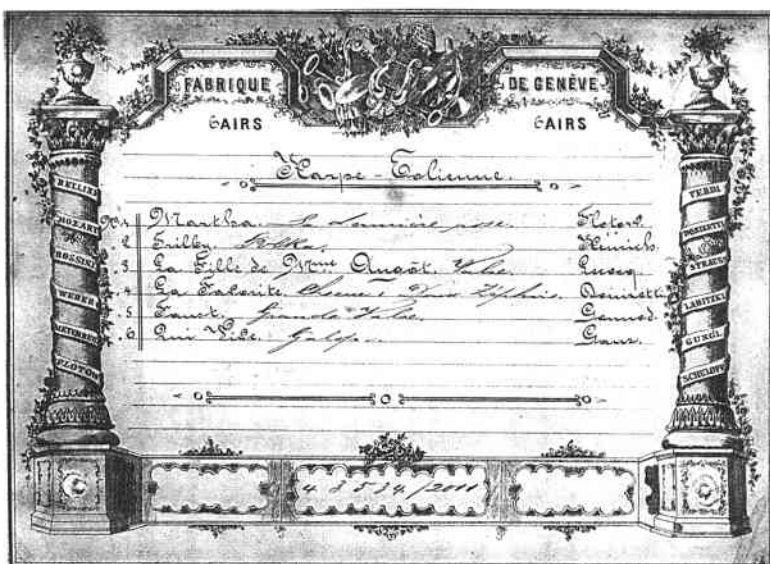 FABRIQUE DE GENÈVE
6 AIRS 6 AIRS
Harpe - Eolienne.
No. 1 Martha. La dernière rose. Flotow.
2 Trilby. Polka. Heinrichs.
3 La Fille de Mme Angôt. Valse. Lecocq
4 La Favorite. Doux Zéphir. Donizetti
5 Faust. Grande Valse. Gounod.
6 Qui Vive. Galop. Ganz.
BELLINI
MOZART
ROSSINI
WEBER
MEYERBEER
FLOTOW
VERDI
DONIZETTI
STRAUSS
LABITZKI
GUNGL
SCHULOFF
4 3 5 3 4 / 2011